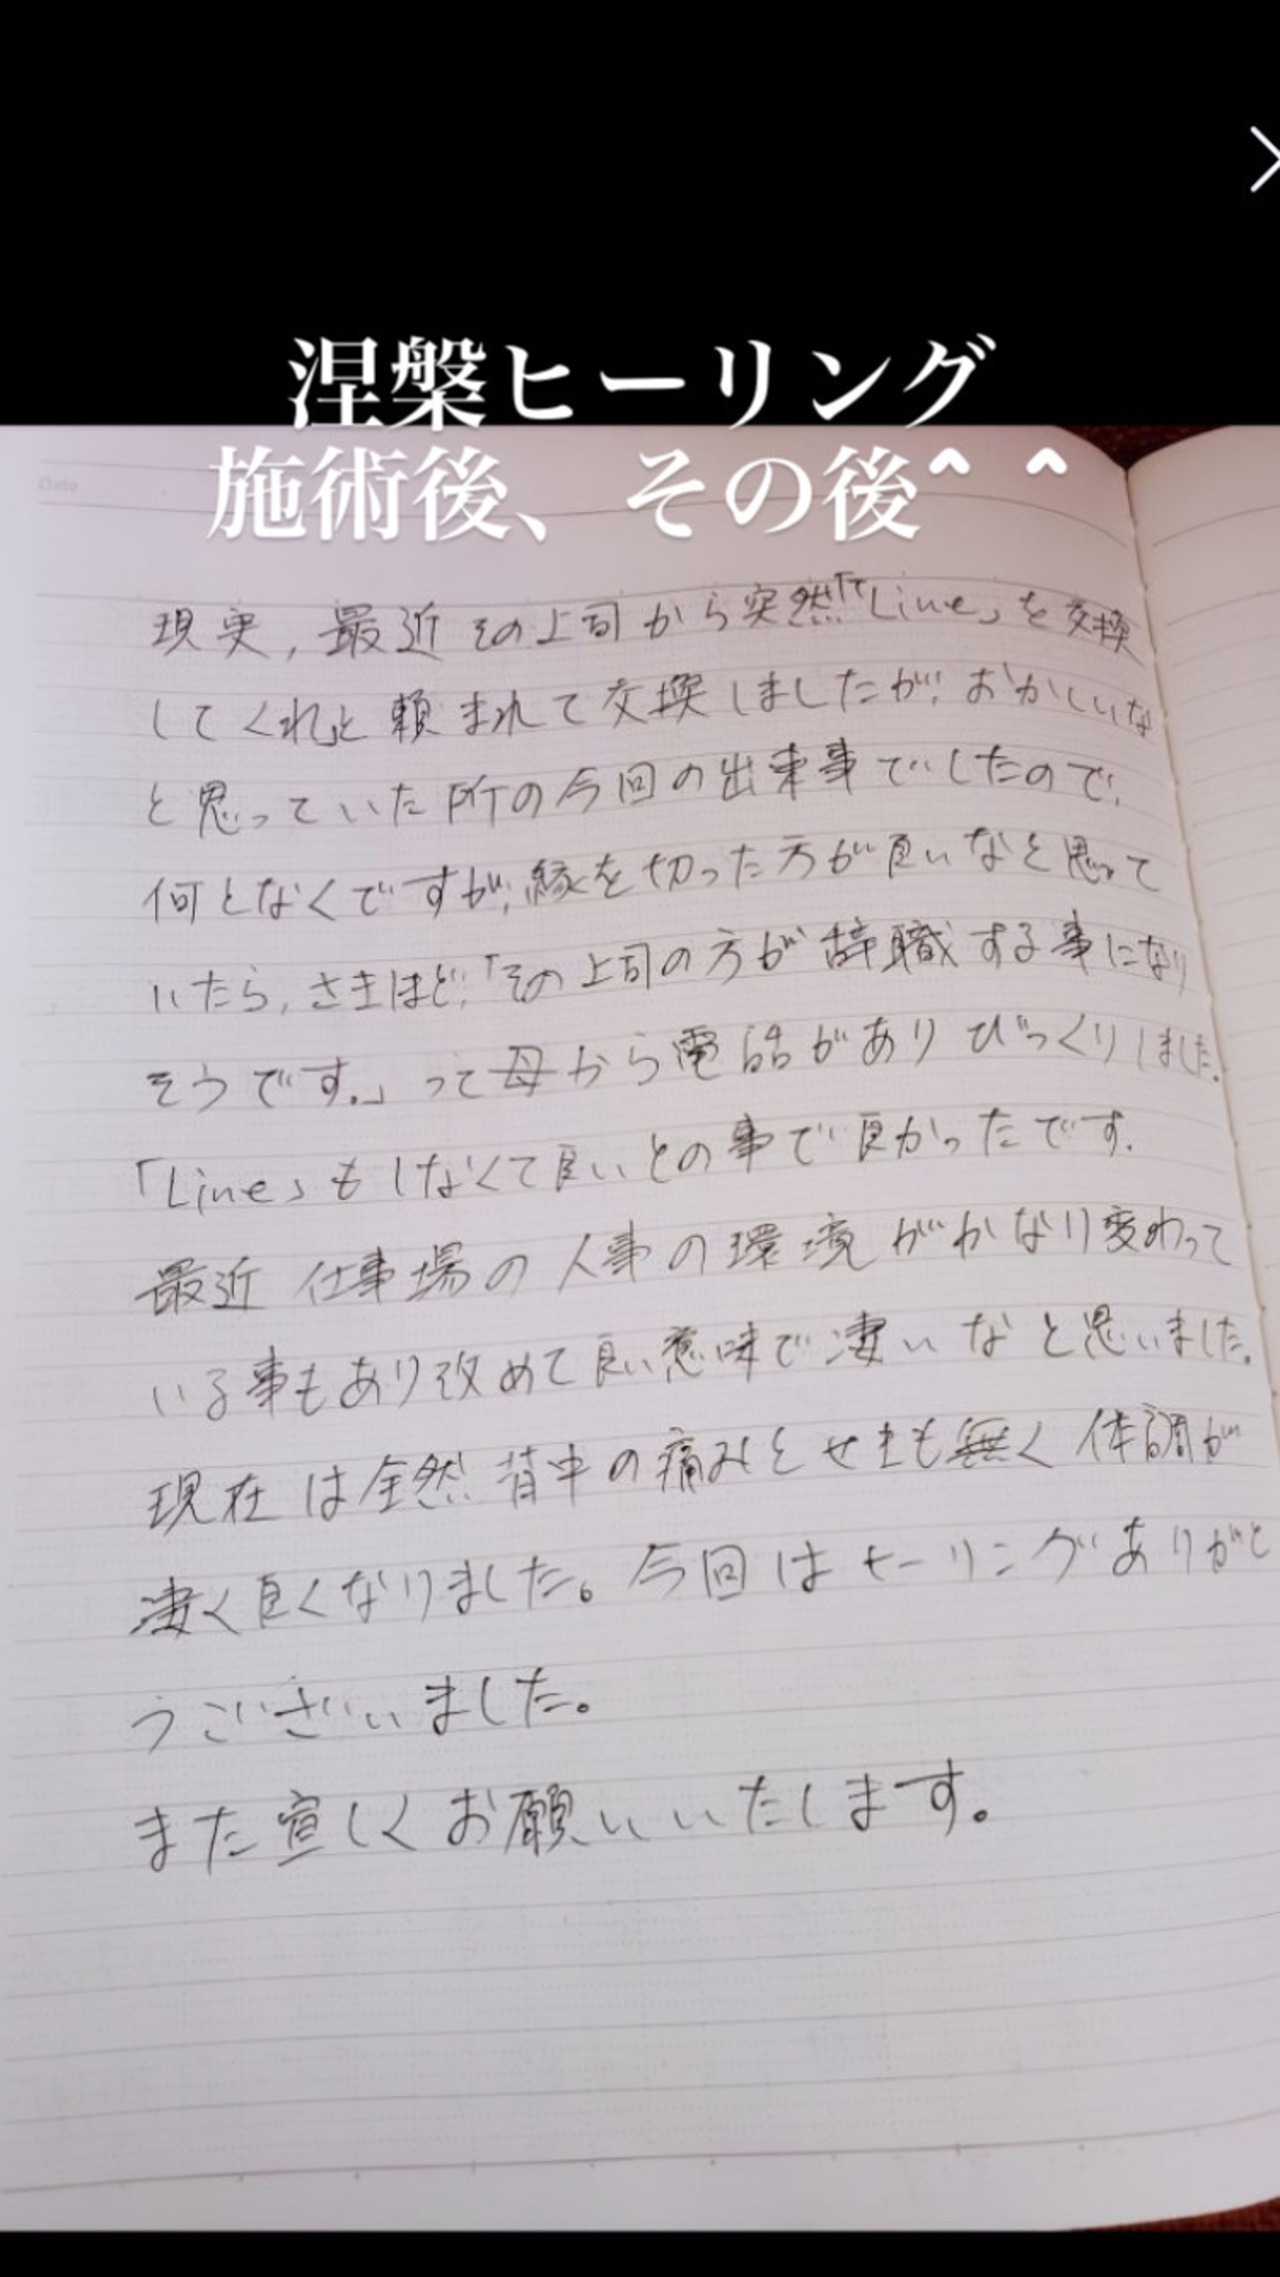 涅槃ヒーリング
施術後、その後^ ^
Date
現実,最近その上司から突然「Line」を交換
してくれと頼まれて交換しましたが,おかしいな
と思っていた所の今回の出来事でしたので,
何となくですが,縁を切った方が良いなと思って
いたら,さきほど,「その上司の方が辞職する事になり
そうです.」って母から電話がありびっくりしました.
「Line」もしなくて良いとの事で良かったです.
最近 仕事場の人事の環境がかなり変わって
いる事もあり改めて良い意味で凄いなと思いました.
現在は全然背中の痛みとせきも無く体調が
凄く良くなりました。今回はヒーリングありがと
うございました。
また宜しくお願いいたします。